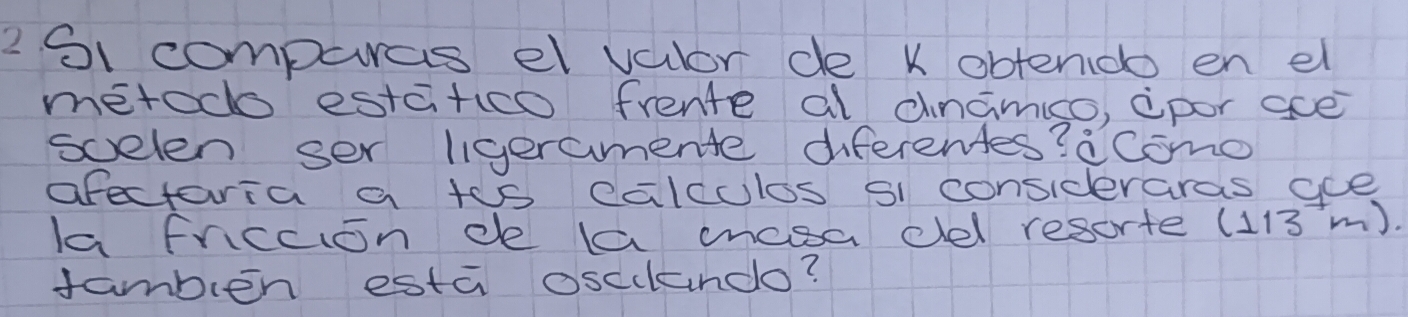 2 Si comparas el valor de K obtenido en el
método estático frente al dinámico, ¿por qué
suelen ser ligeramente diferentes? ¿Cómo
afectaría a tus cálculos si consideraras que
la fricción de la masa del resorte (113 m).
también está oscilando?